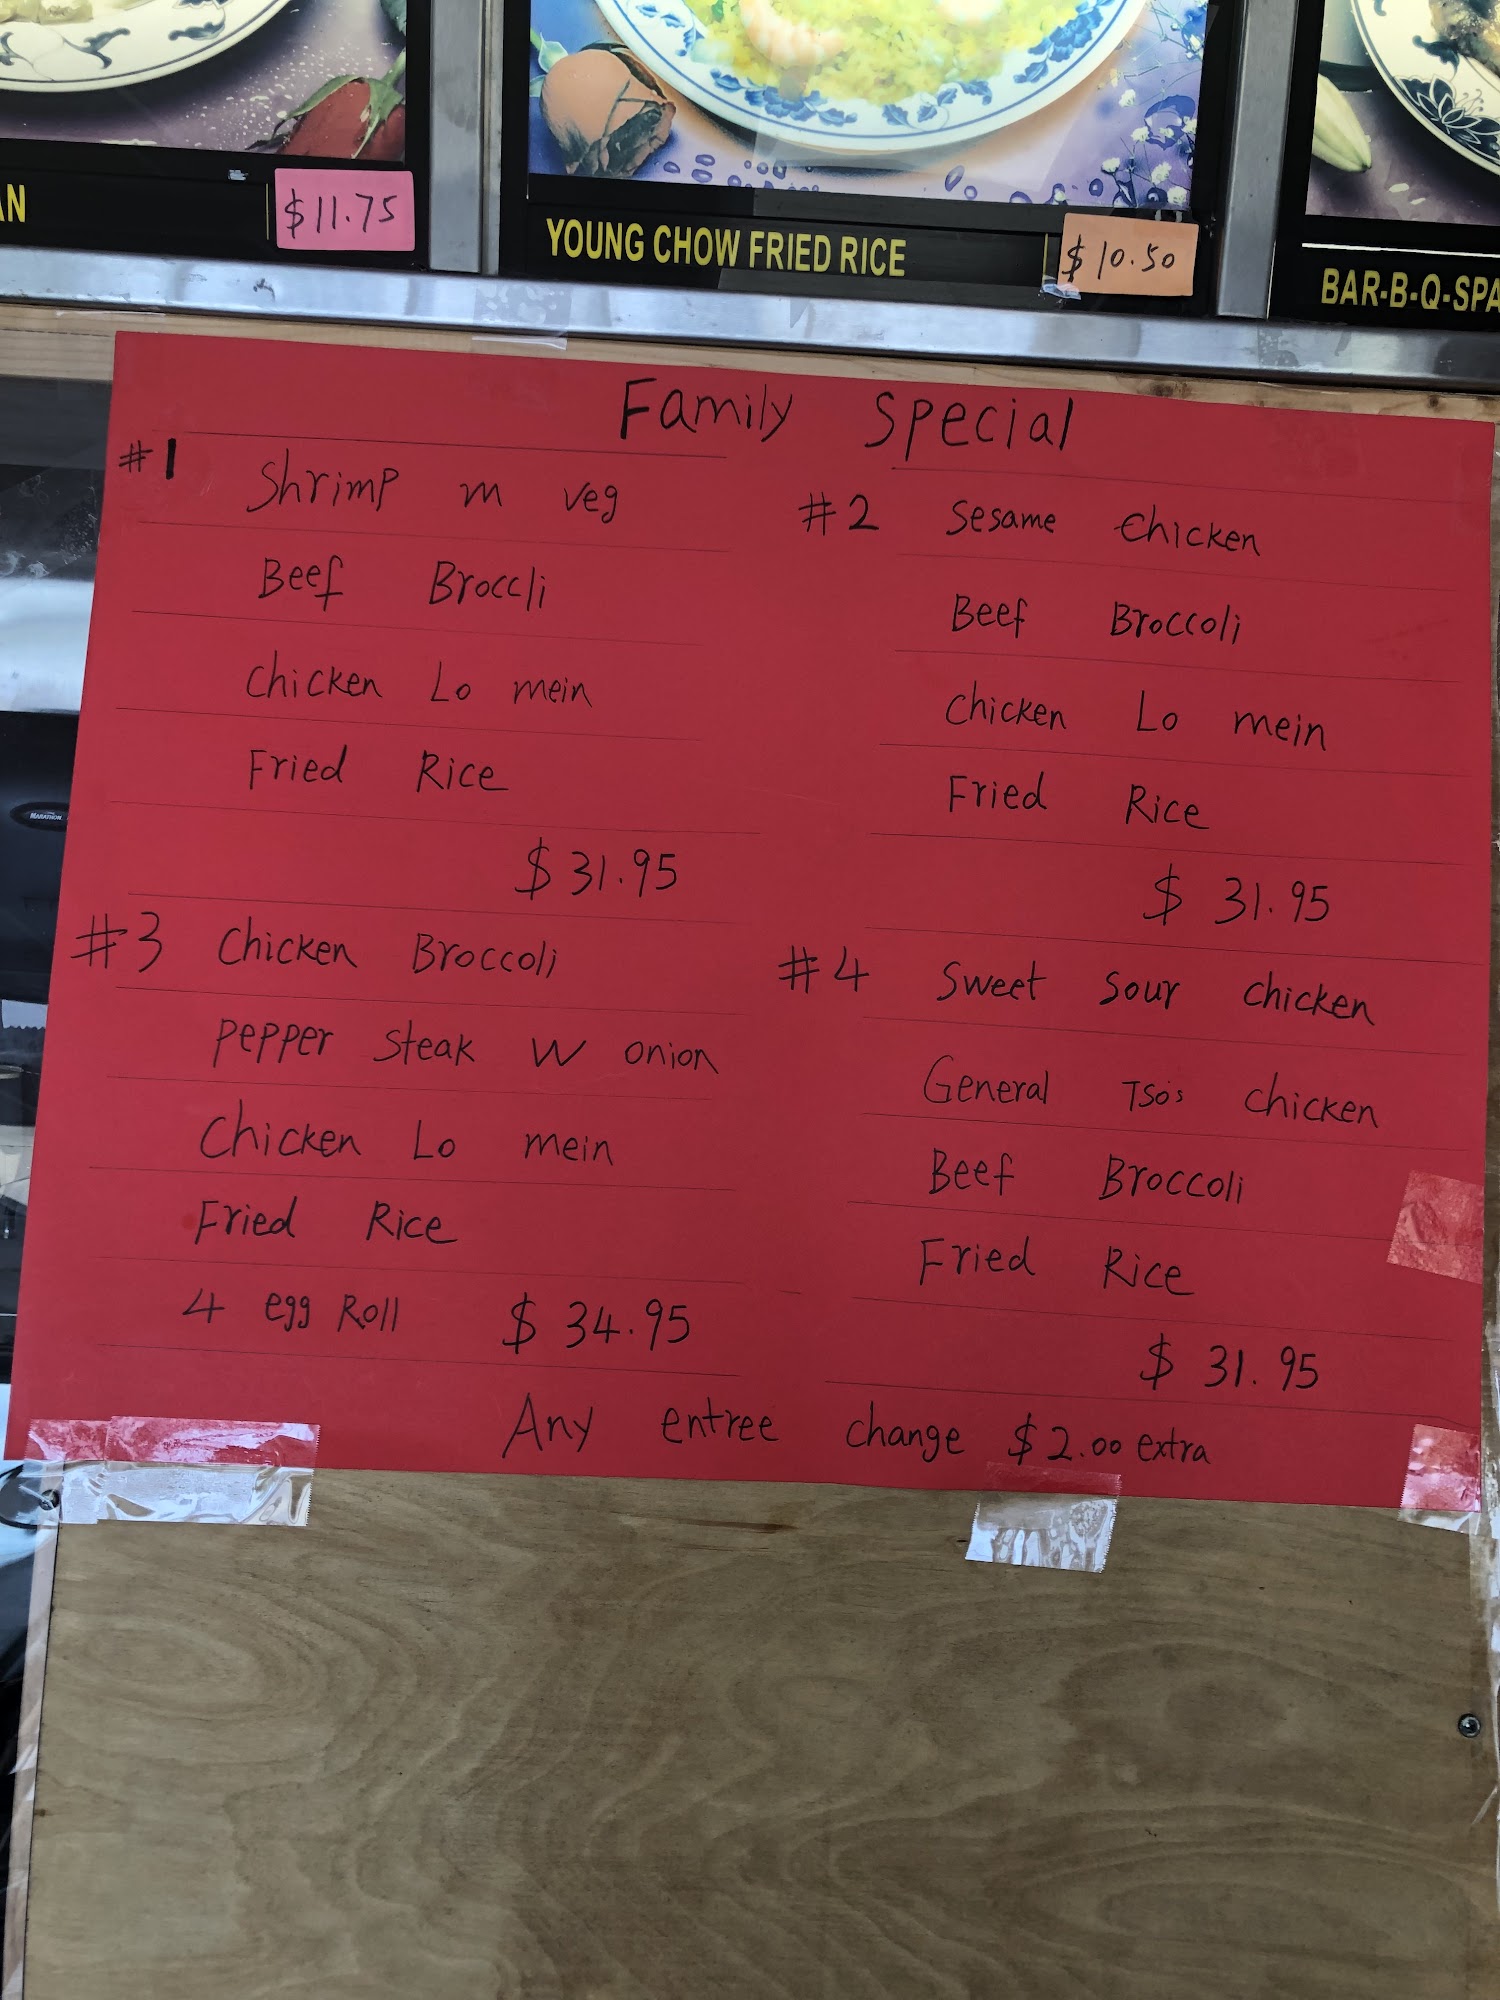 AN
$11.75
YOUNG CHOW FRIED RICE
$10.50
BAR-B-Q-SPA
Family Special
#1 Shrimp m veg
Beef Broccli
Chicken Lo mein
Fried Rice
$31.95
#2 Sesame Chicken
Beef Broccoli
Chicken Lo mein
Fried Rice
$31.95
#3 Chicken Broccoli
Pepper Steak W onion
Chicken Lo mein
Fried Rice
4 egg Roll $34.95
#4 Sweet Sour Chicken
General Tso's Chicken
Beef Broccoli
Fried Rice
$31.95
Any entree change $2.00 extra
MARATHON